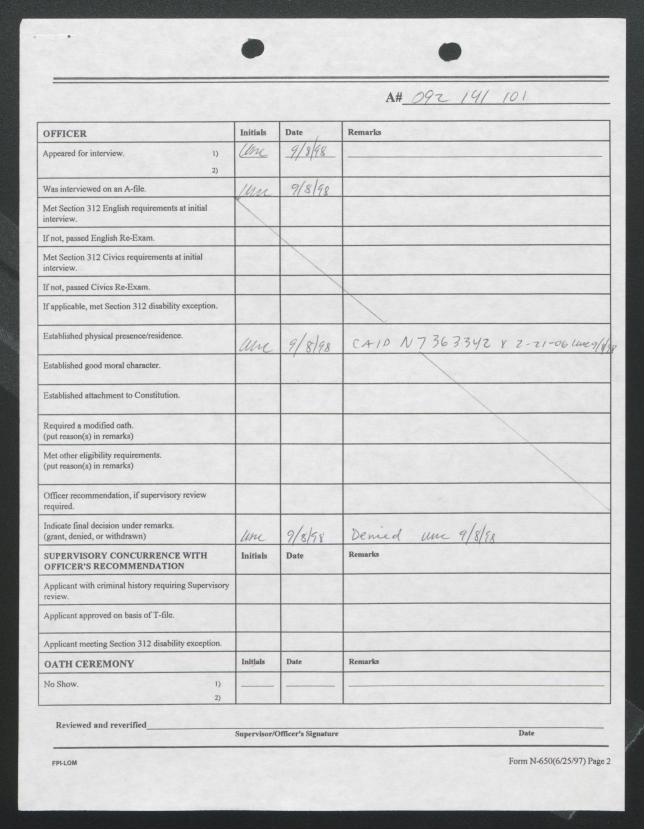 A# 092 141 101
OFFICER Initials Date Remarks
Appeared for interview. 1) 9/8/98
2)
Was interviewed on an A-file. 9/8/98
Met Section 312 English requirements at initial
interview.
If not, passed English Re-Exam.
Met Section 312 Civics requirements at initial
interview.
If not, passed Civics Re-Exam.
If applicable, met Section 312 disability exception.
Established physical presence/residence. 9/8/98 CAID N7363342 X 2-21-06 9/8/98
Established good moral character.
Established attachment to Constitution.
Required a modified oath.
(put reason(s) in remarks)
Met other eligibility requirements.
(put reason(s) in remarks)
Officer recommendation, if supervisory review
required.
Indicate final decision under remarks.
(grant, denied, or withdrawn) 9/8/98 Denied 9/8/98
SUPERVISORY CONCURRENCE WITH Initials Date Remarks
OFFICER'S RECOMMENDATION
Applicant with criminal history requiring Supervisory
review.
Applicant approved on basis of T-file.
Applicant meeting Section 312 disability exception.
OATH CEREMONY Initials Date Remarks
No Show. 1)
2)
Reviewed and reverified
Supervisor/Officer's Signature Date
FPI-LOM Form N-650(6/25/97) Page 2